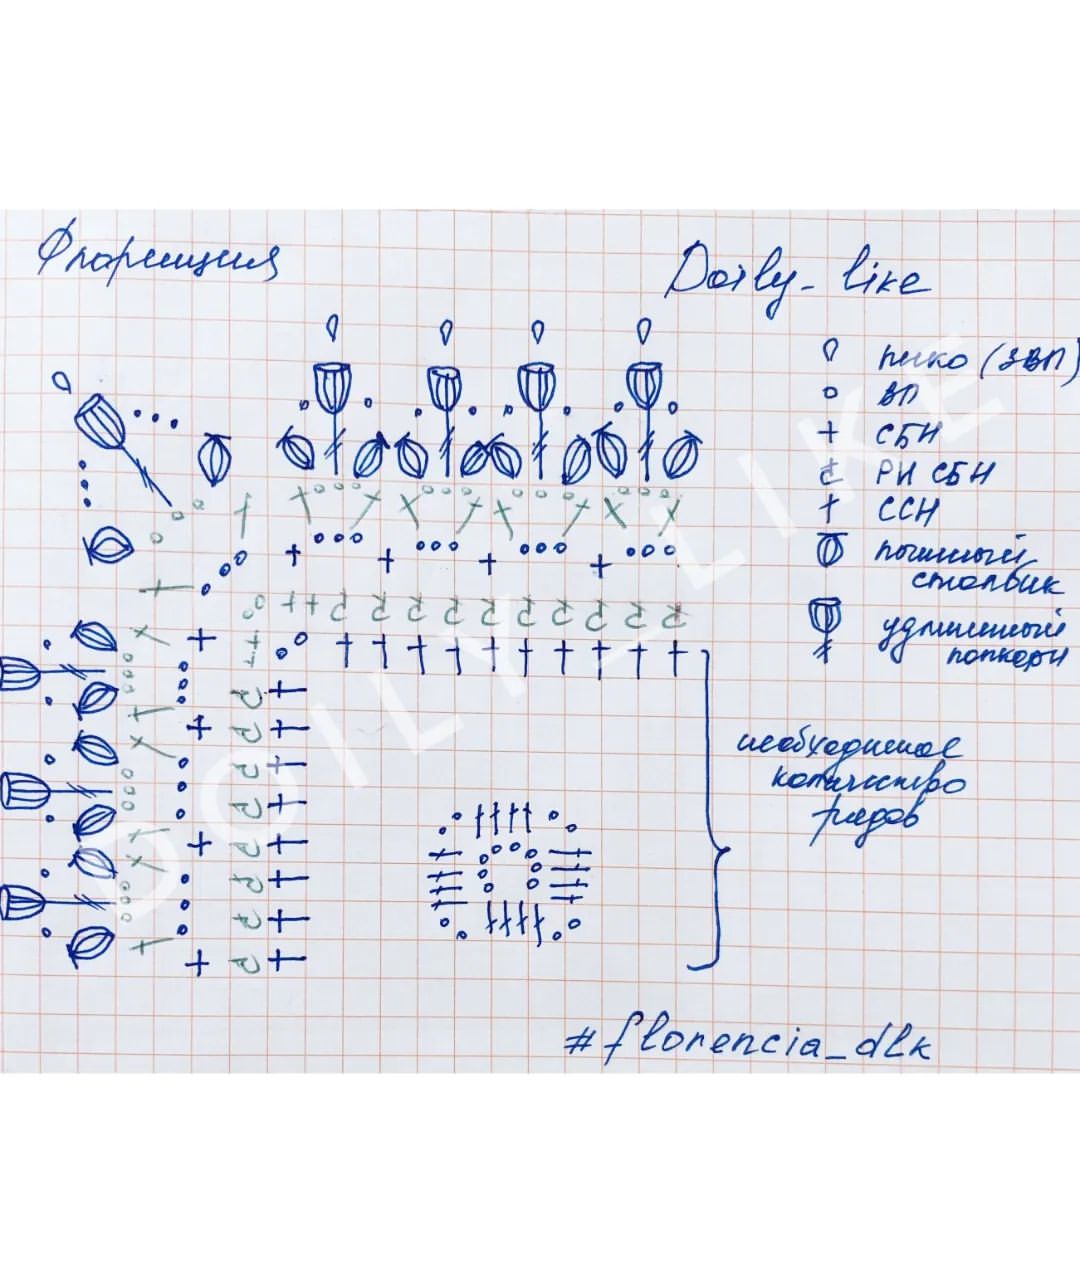 Флоренция
Doily_like
пико (3ВП)
ВП
СБН
РИ СБН
ССН
пышный
столбик
удлинённый
попкорн
необходимое
количество
рядов
#florencia_dlk
DOILY_LIKE